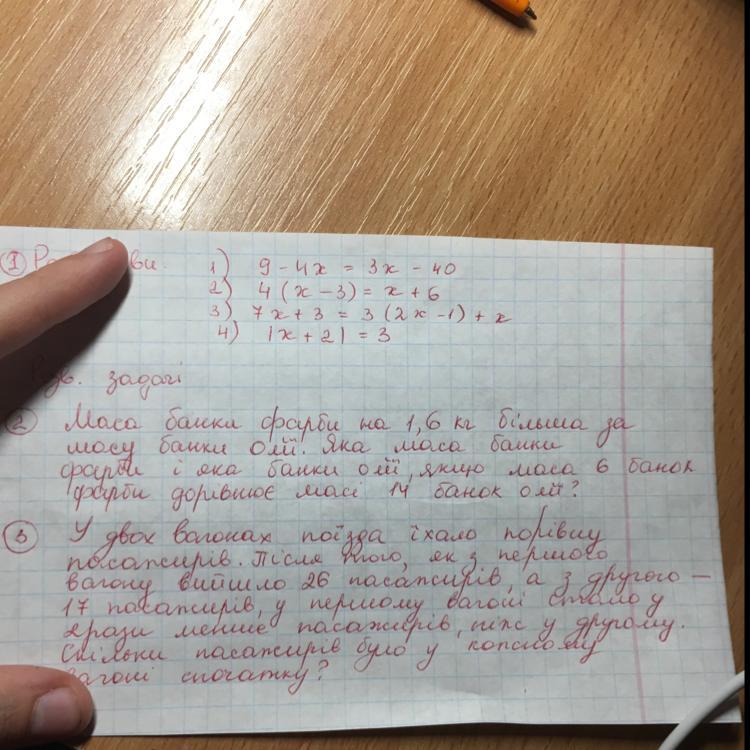 1
1) 9 - 4x = 3x - 40
2) 4 (x - 3) = x + 6
3) 7x + 3 = 3 (2x - 1) + x
4) |x + 2| = 3
задачі
2 Маса банки фарби на 1,6 кг більша за
масу банки олії. Яка маса банки
фарби і яка банки олії, якщо маса 6 банок
фарби дорівнює масі 14 банок олії?
3 У двох вагонах поїзда їхало порівну
пасажирів. Після того, як з першого
вагону вийшло 26 пасажирів, а з другого —
17 пасажирів, у першому вагоні стало у
2 рази менше пасажирів, ніж у другому.
Скільки пасажирів було у кожному
вагоні спочатку?